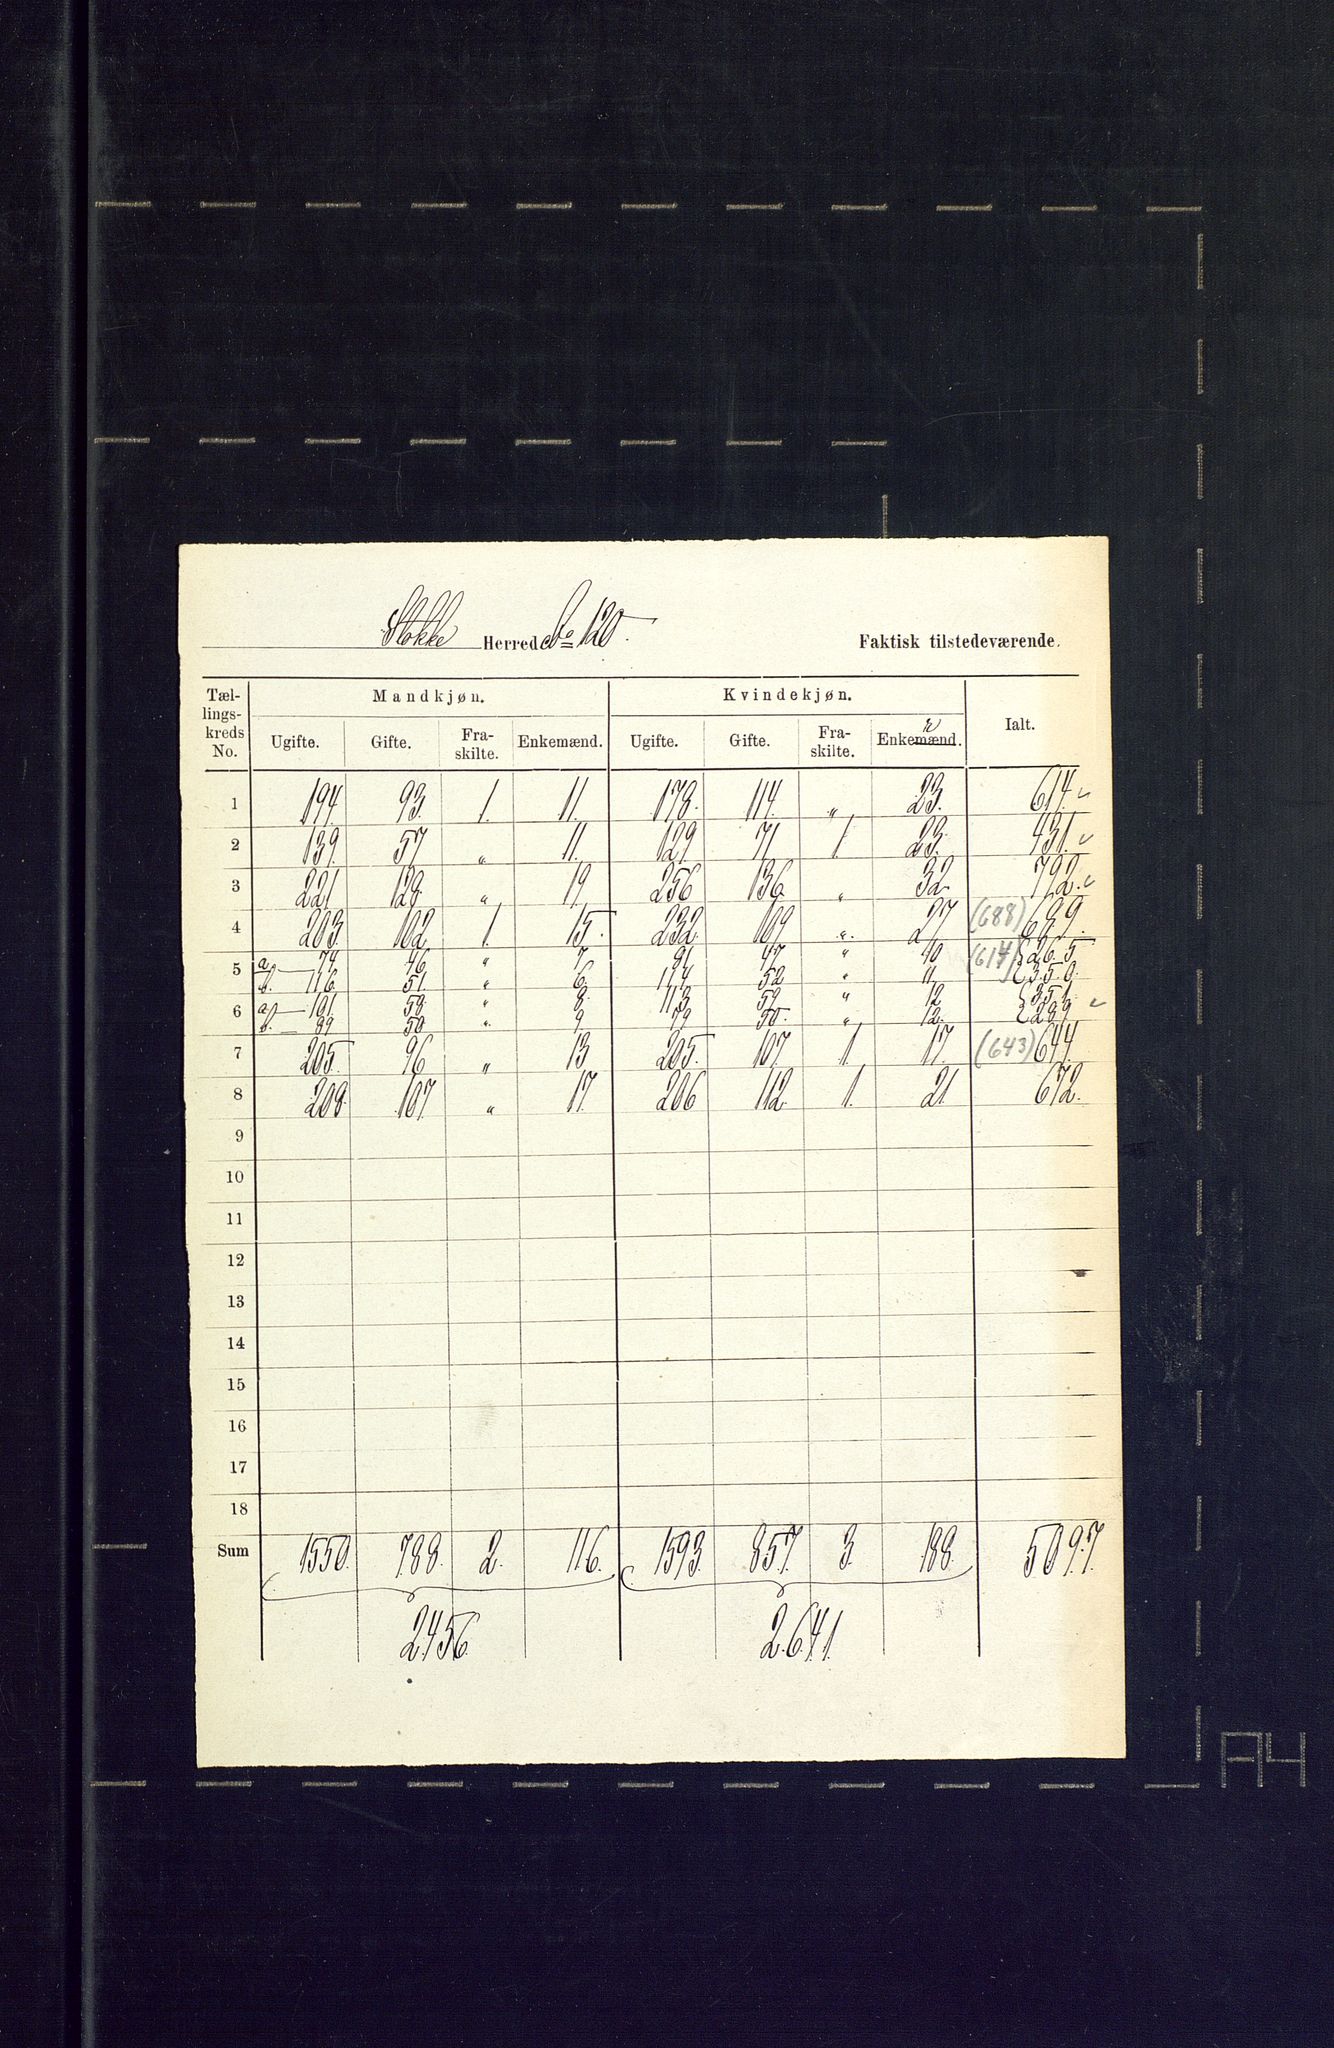 Stokke Herred No 120.
Faktisk tilstedeværende.
Tæl-
lings-
kreds
No.
Mandkjøn.
Kvindekjøn.
Ialt.
Ugifte. Gifte. Fra-
skilte. Enkemænd. Ugifte. Gifte. Fra-
skilte. Enkemænd.
r
1 194. 93. 1. 11. 178. 114. „ 23. 614. ✓
2 139. 57 „ 11. 129. 71 1. 23. 431. ✓
3 221 128. „ 19, 256 136 „ 32 792. ✓
4 203. 102 1. 15. 232. 109 „. 27 (688) 689.
5 a 74 46 „ 7 81 47 „ 10 (614) {265
b. 116 51. „ 6 114 52 „ 11 {350.
6 a 101 58 „ 8. 113 59 „ 12 {351.
b. 89 50 „ 9 79 50. „ 12. {289 ✓
7 205. 96 „ 13 205. 107 1. 17. (643) 644.
8 208. 107. „ 17. 206 112. 1. 21 672.
9
10
11
12
13
14
15
16
17
18
Sum 1550. 788. 2. 116. 1593. 857. 3. 188. 5097.
2456. 2641.
A4